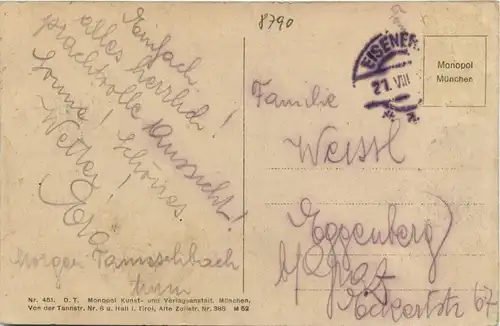 8790
Einfach
alles herrlich!
prachtvolle Aussicht!
Sonne! Schönes
Wetter!
Morgen
EISENER
21. VIII
Monopol
München
Familie
Weissl
Eggenberg
b/ Graz
Eckertstr 67
Nr. 451. D. T. Monopol Kunst- und Verlagsanstalt. München,
Von der Tannstr. Nr. 8 u. Hall i. Tirol, Alte Zollstr. Nr. 386 M 52